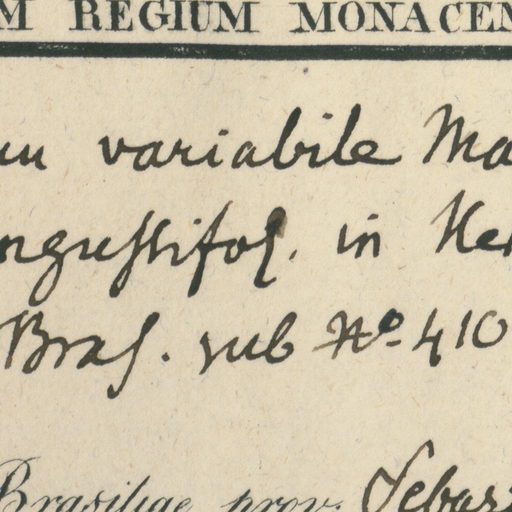 M REGIUM MONACEN
um variabile Ma
angustifol. in Her
Bras. sub No 410
Brasiliae prov. Sebas